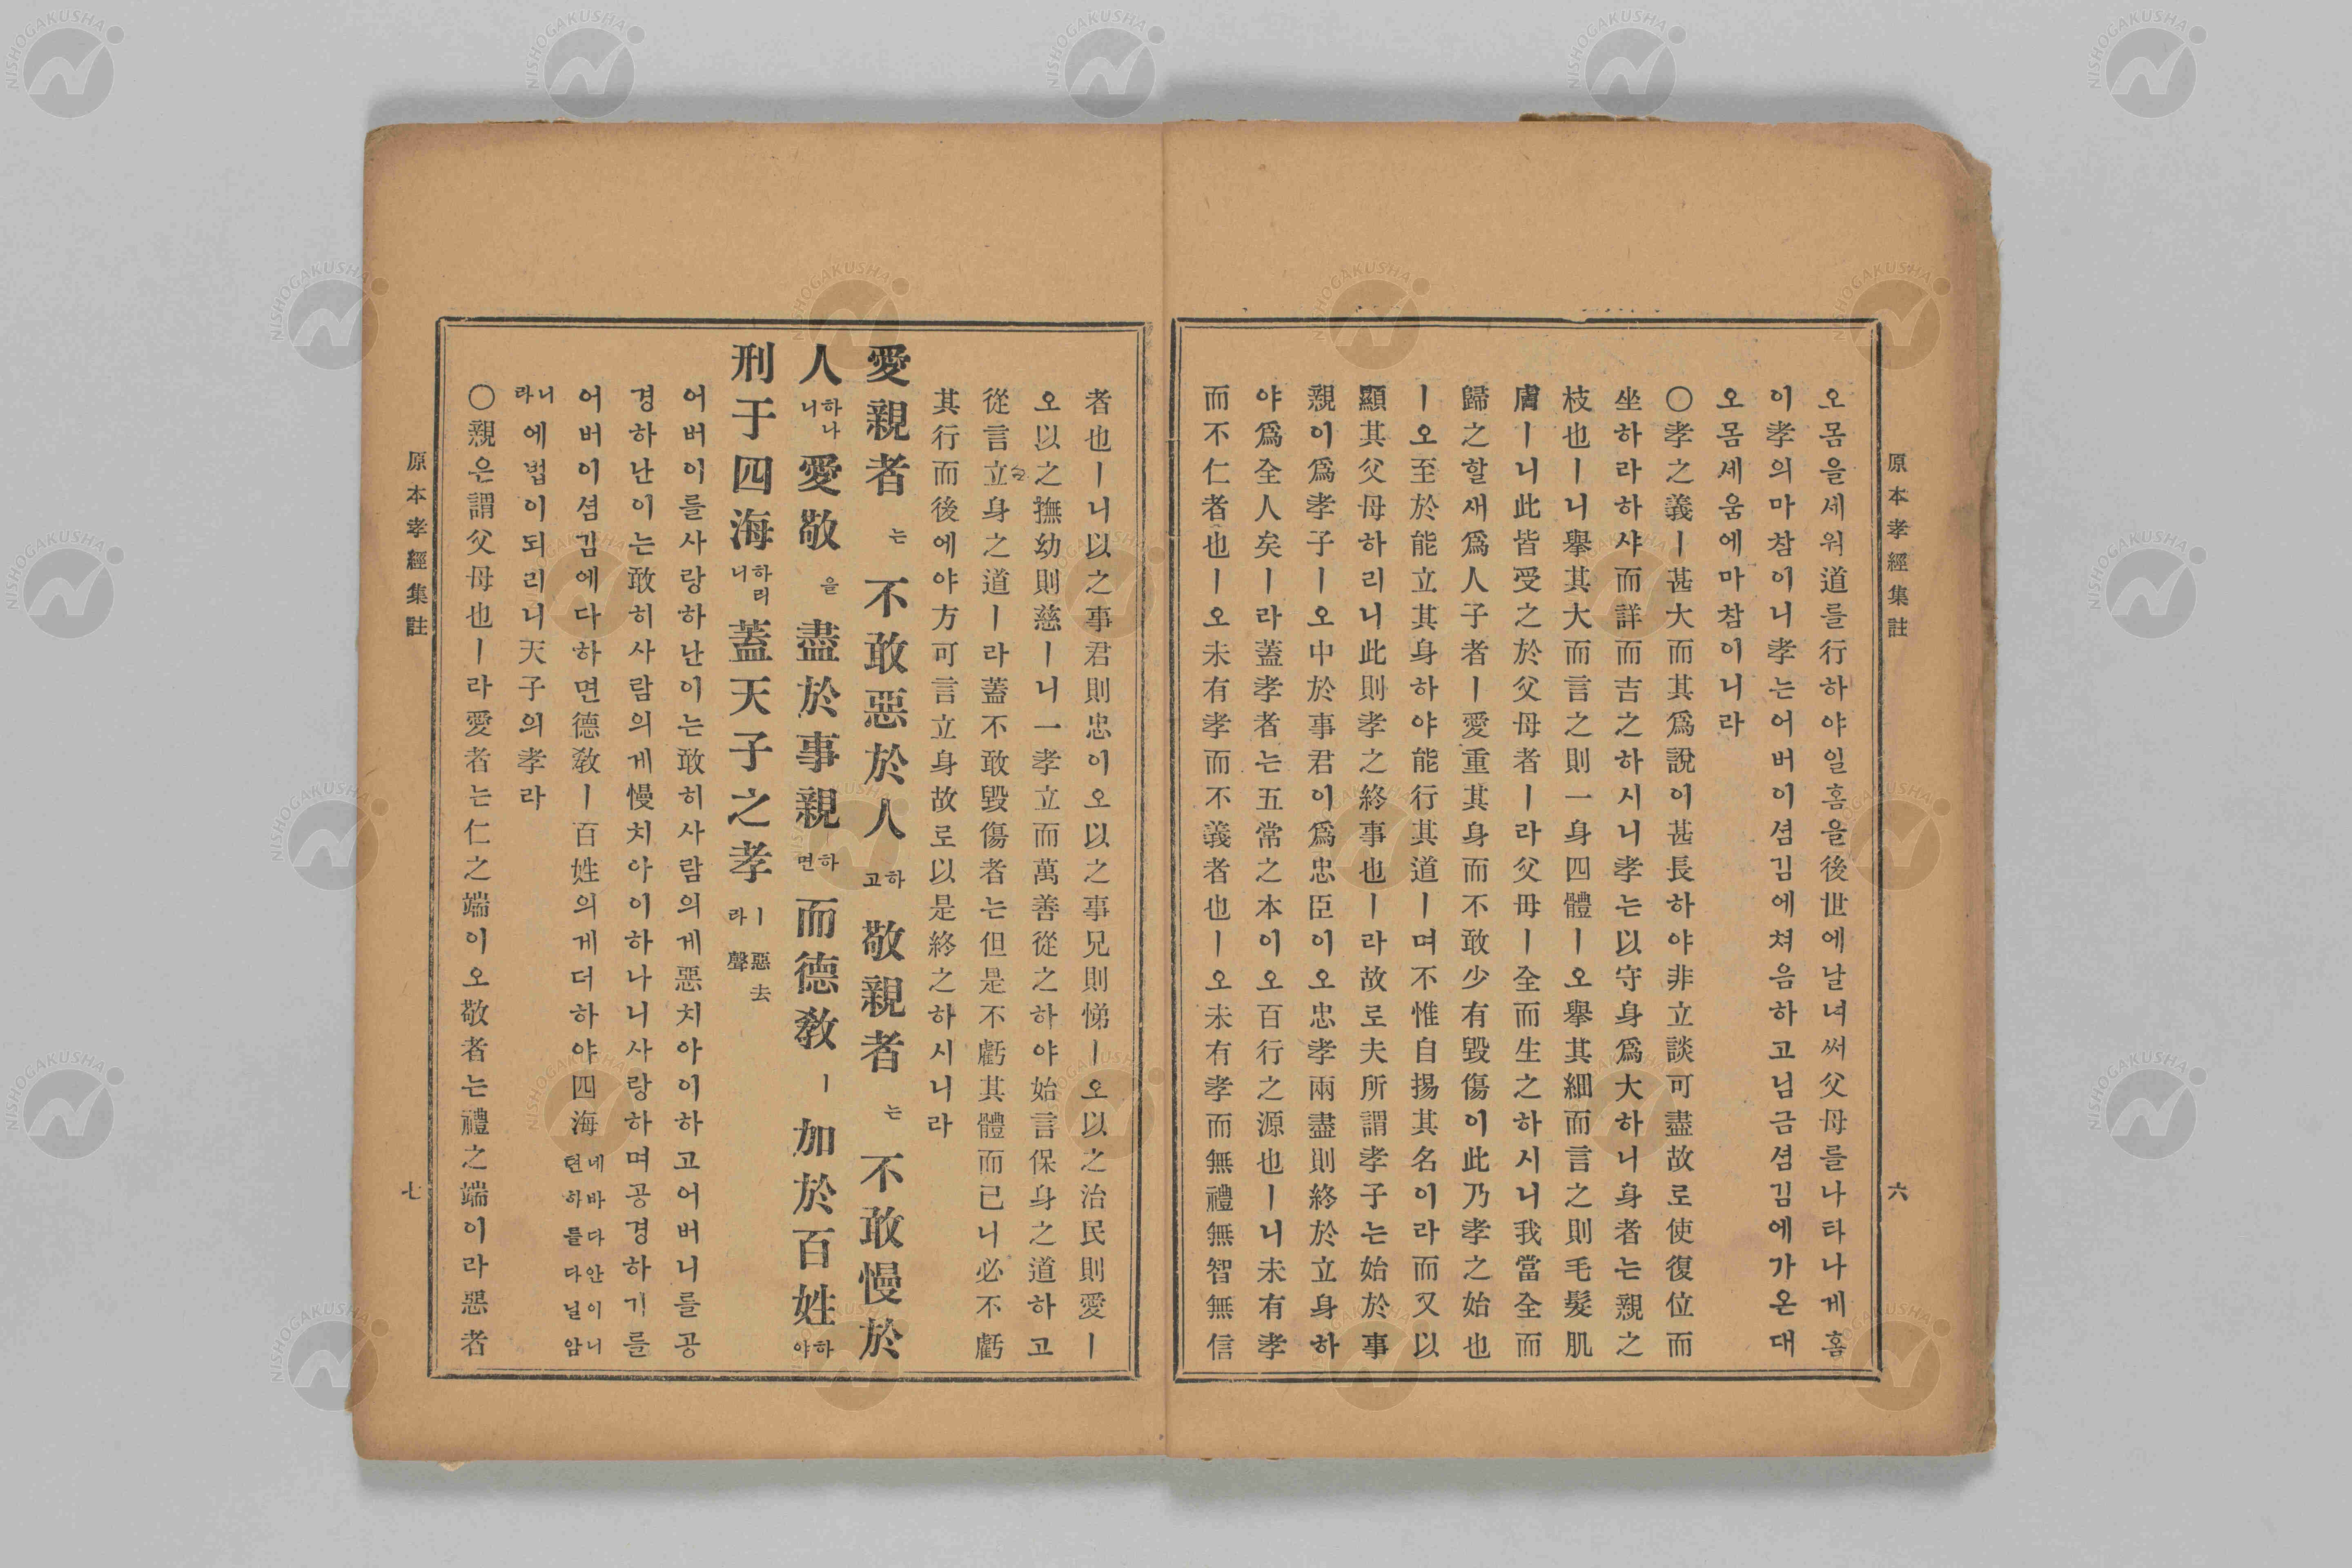 原本孝經集註
六
오몸을세워道를行하야일홈을後世에날녀써父母를나타나게홈
이孝의마참이니孝는어버이셤김에쳐음하고님금셤김에가온대
오몸세움에마참이니라
〇孝之義ㅣ甚大而其爲說이甚長하야非立談可盡故로使復位而
坐하라하샤而詳而吉之하시니孝는以守身爲大하니身者는親之
枝也ㅣ니擧其大而言之則一身四體ㅣ오擧其細而言之則毛髮肌
膚ㅣ니此皆受之於父母者ㅣ라父母ㅣ全而生之하시니我當全而
歸之할새爲人子者ㅣ愛重其身而不敢少有毀傷이此乃孝之始也
ㅣ오至於能立其身하야能行其道ㅣ며不惟自揚其名이라而又以
顯其父母하리니此則孝之終事也ㅣ라故로夫所謂孝子는始於事
親이爲孝子ㅣ오中於事君이爲忠臣이오忠孝兩盡則終於立身하
야爲全人矣ㅣ라蓋孝者는五常之本이오百行之源也ㅣ니未有孝
而不仁者也ㅣ오未有孝而不義者也ㅣ오未有孝而無禮無智無信
者也ㅣ니以之事君則忠이오以之事兄則悌ㅣ오以之治民則愛ㅣ
오以之撫幼則慈ㅣ니一孝立而萬善從之하야始言保身之道하고
從言立身之道ㅣ라蓋不敢毀傷者는但是不虧其體而已니必不虧
其行而後에야方可言立身故로以是終之하시니라
愛親者는不敢惡於人하고敬親者는不敢慢於
人하나니愛敬을盡於事親하면而德敎ㅣ加於百姓하야
刑于四海하리니蓋天子之孝ㅣ라 惡去聲
어버이를사랑하난이는敢히사람의게惡치아이하고어버니를공
경하난이는敢히사람의게慢치아이하나니사랑하며공경하기를
어버이셤김에다하면德敎ㅣ百姓의게더하야四海네바다안이니현하를다닐암
니라에법이되리니天子의孝라
〇親은謂父母也ㅣ라愛者는仁之端이오敬者는禮之端이라惡者
原本孝經集註
七